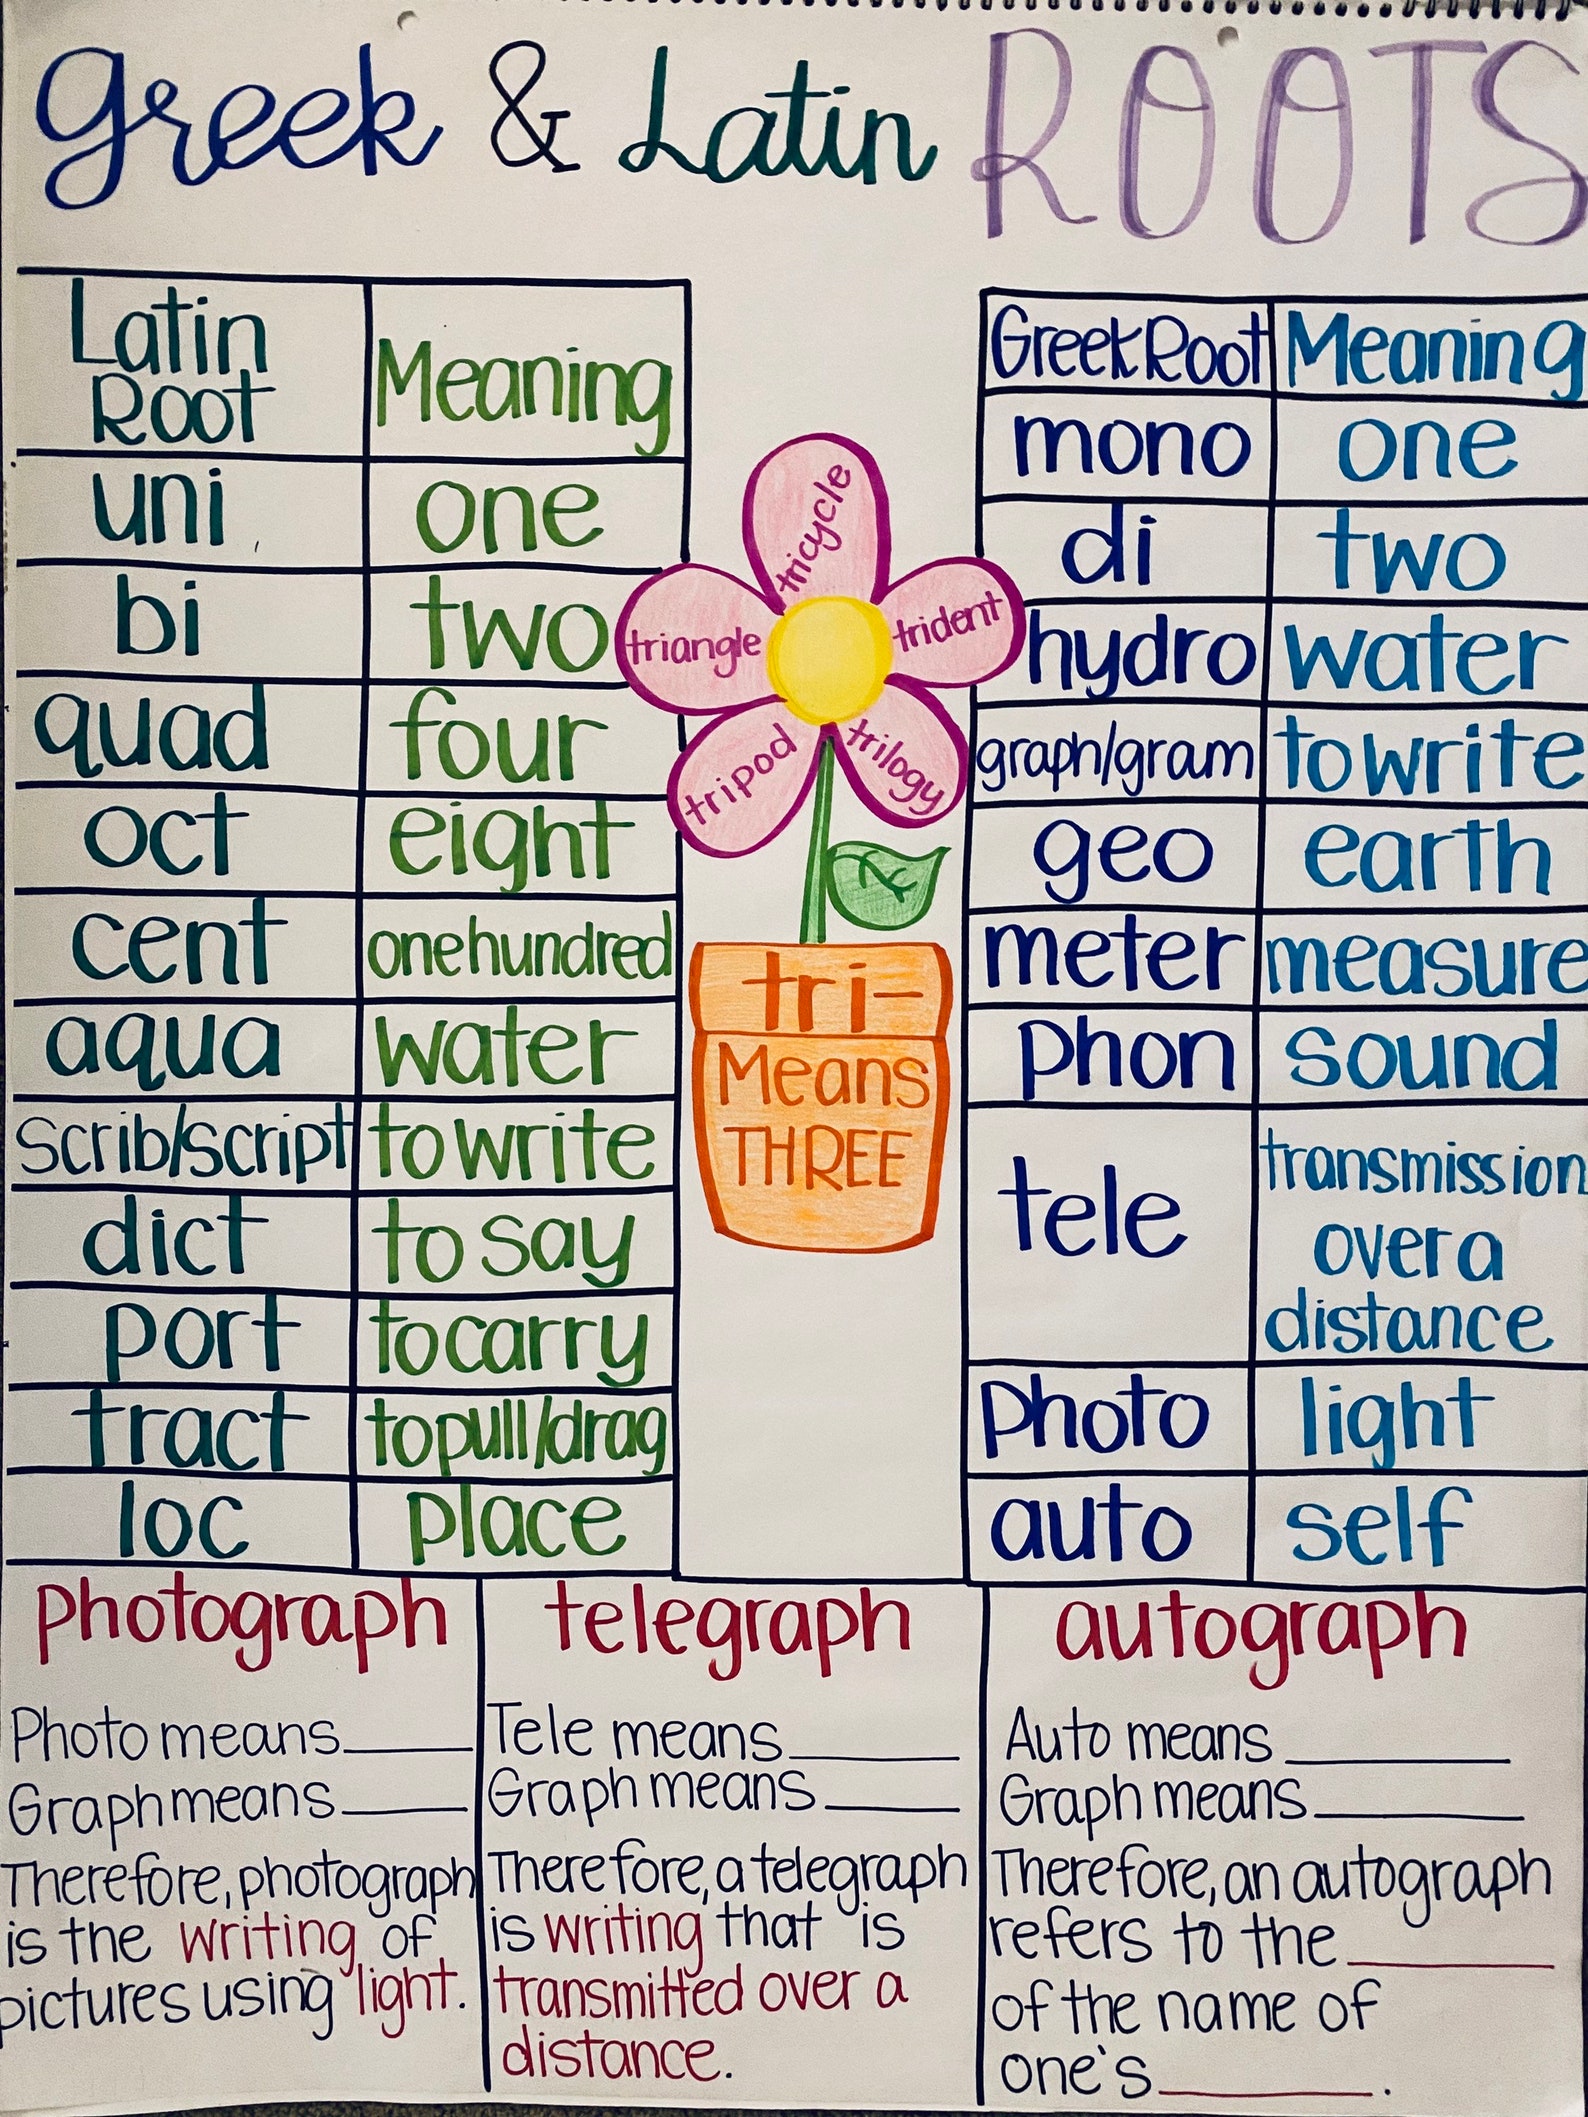 Greek & Latin ROOTS
Latin Root Meaning
uni one
bi two
quad four
oct eight
cent one hundred
aqua water
scrib/script to write
dict to say
port to carry
tract to pull/drag
loc place
tricycle
triangle
trident
tripod
trilogy
tri-
Means
THREE
Greek Root Meaning
mono one
di two
hydro water
graph/gram to write
geo earth
meter measure
phon sound
tele transmission
over a
distance
photo light
auto self
photograph
Photo means____
Graph means____
Therefore, photograph
is the writing of
pictures using light.
telegraph
Tele means____
Graph means____
Therefore, a telegraph
is writing that is
transmitted over a
distance.
autograph
Auto means____
Graph means____
Therefore, an autograph
refers to the____
of the name of
one's____.